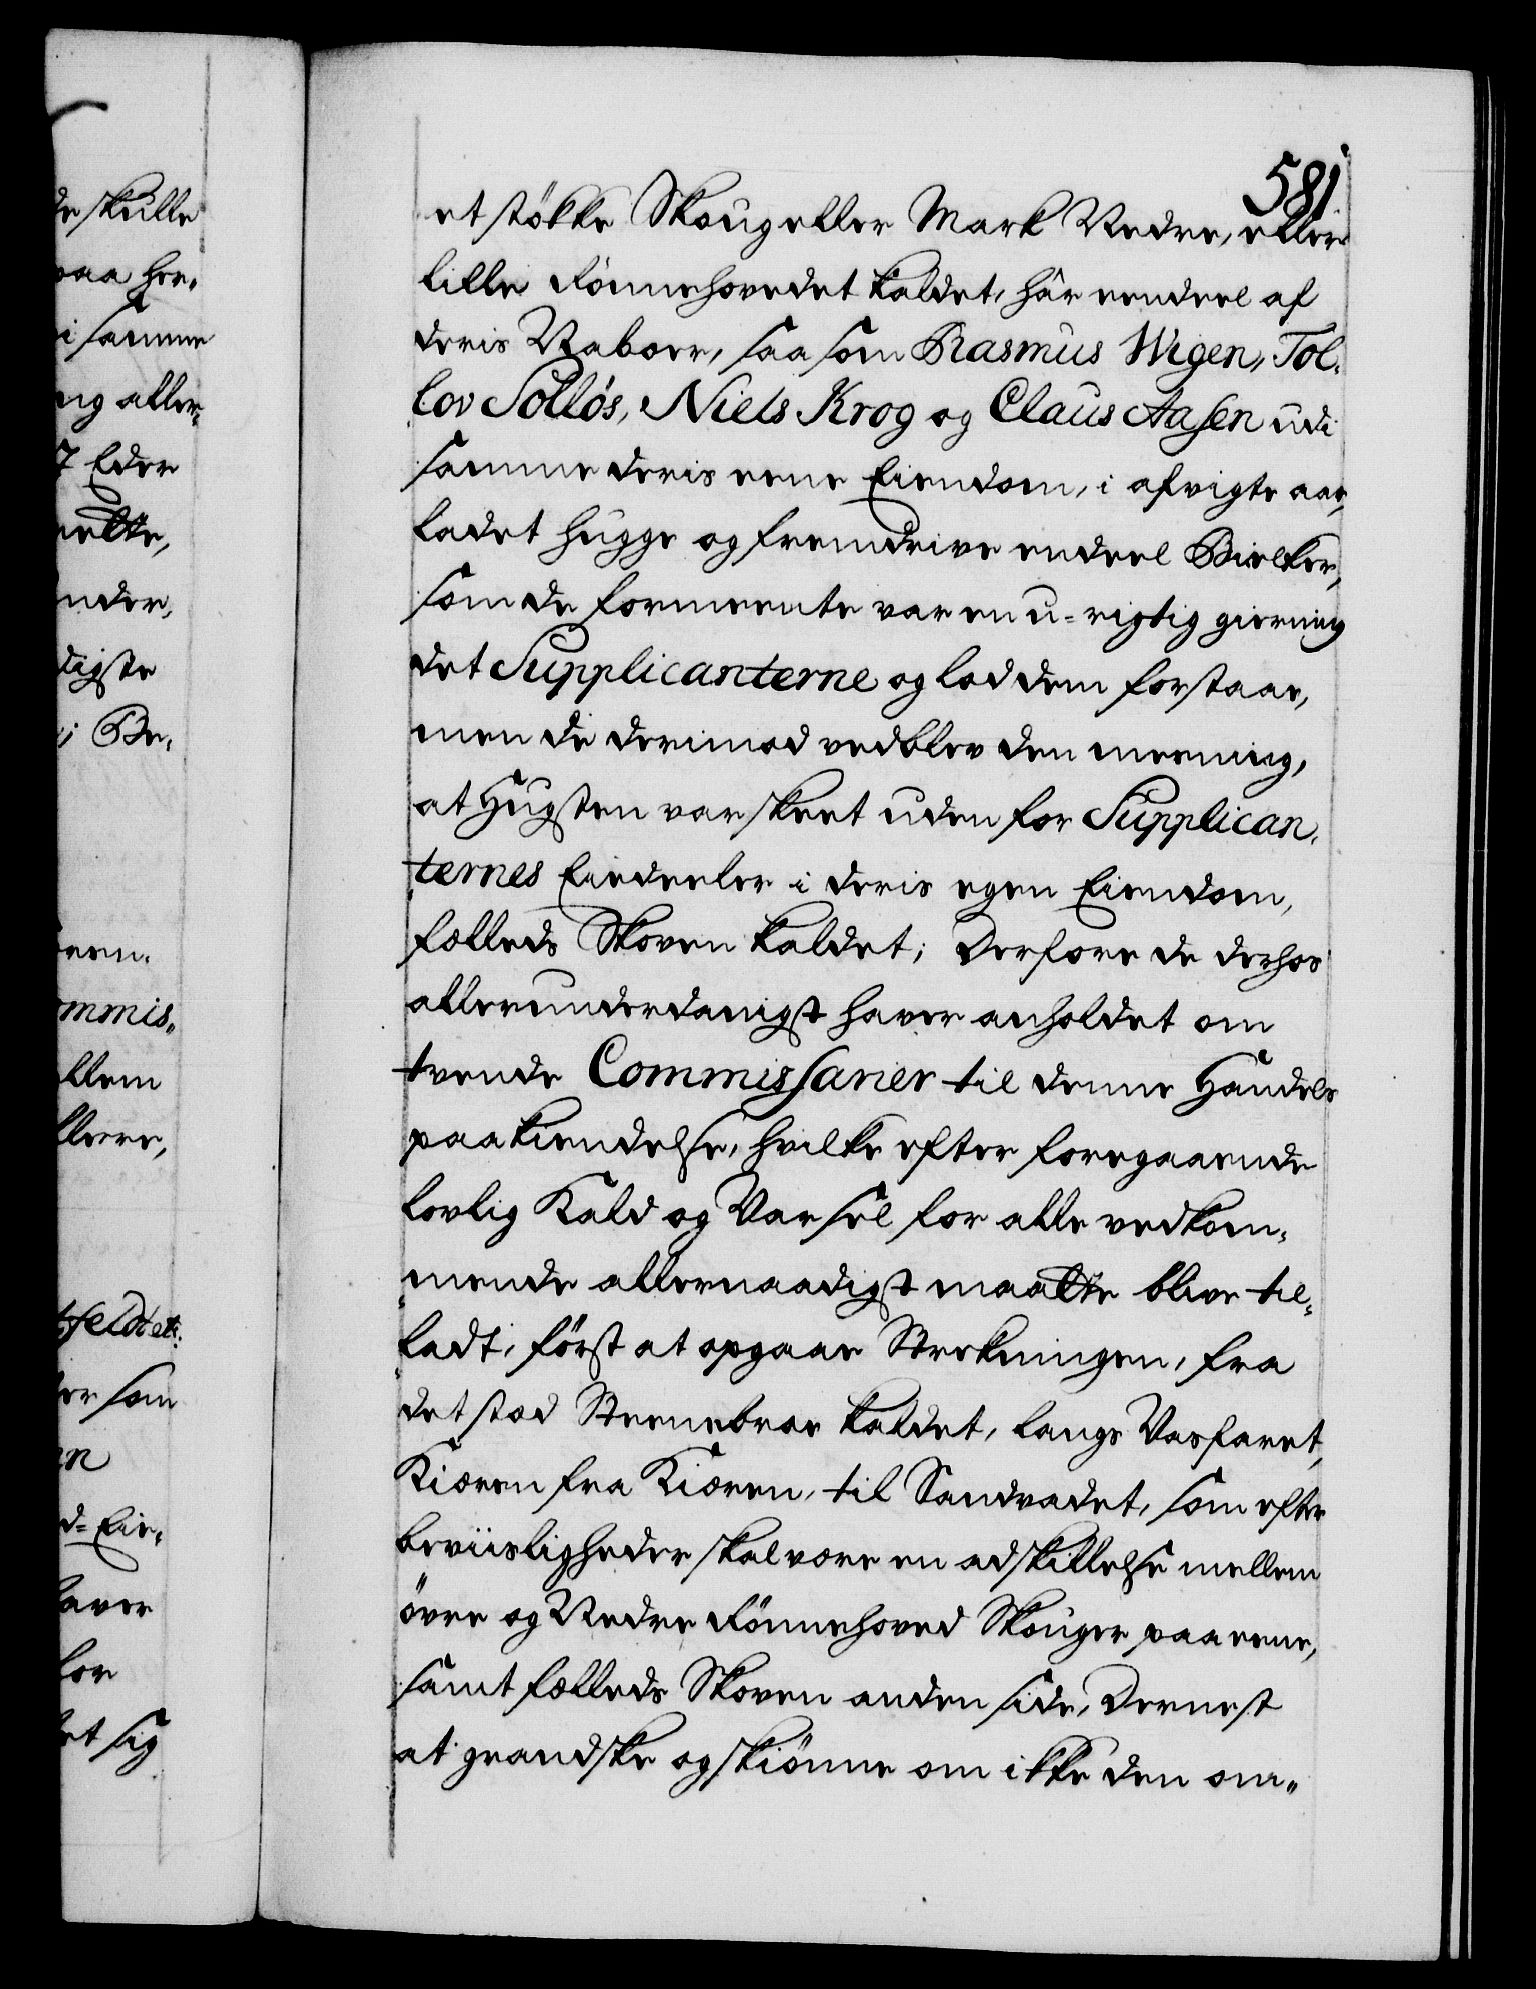 581
et stökke Skoug eller Mark Nedre, eller
lille Fönnehovedet kaldet, hâr eendeel af
deris Naboer, saa som Rasmus Wigen, Tol-
lov Solløs, Niels Krog og Claus Aasen udi
samme deris eene Eiendom, i afvigte aar,
ladet hugge og fremdrive endeel Bielker,
som de formeente var en u-rigtig gierning
det Supplicanterne og lod dem forstaae,
men de derimod vedblev den meening,
at Hugsten var skeet uden for Supplican-
ternes Eiedeeler i deris egen Eiendom,
fælleds Skoven kaldet; Derfore de derhos
allerunderdanigst haver anholdet om
tvende Commissarier til denne Handels
paakiendelse, hvilke efter foregaaende
lovlig Kald og Varsel for alle vedkom-
mende allernaadigst maatte blive til-
ladt, först at opgaae Strekningen, fra
det stæd Steenebroe kaldet, langs Vasfaret,
Kiæren fra Kiæren, til Sandvadet, som efter
beviisligheder skal være en adskillelse mellem
övre og Nedre Fönnehoved Skouger paa eene,
samt fælleds Skoven anden side, Dernest
at grandske og skiönne om ikke den om-
de skulle
paa her-
i samme
ng aller-
7 Eder
nder,
digste
i Be-
ommis-
ellem
ter som
d-Eie-
haver
for
et sig